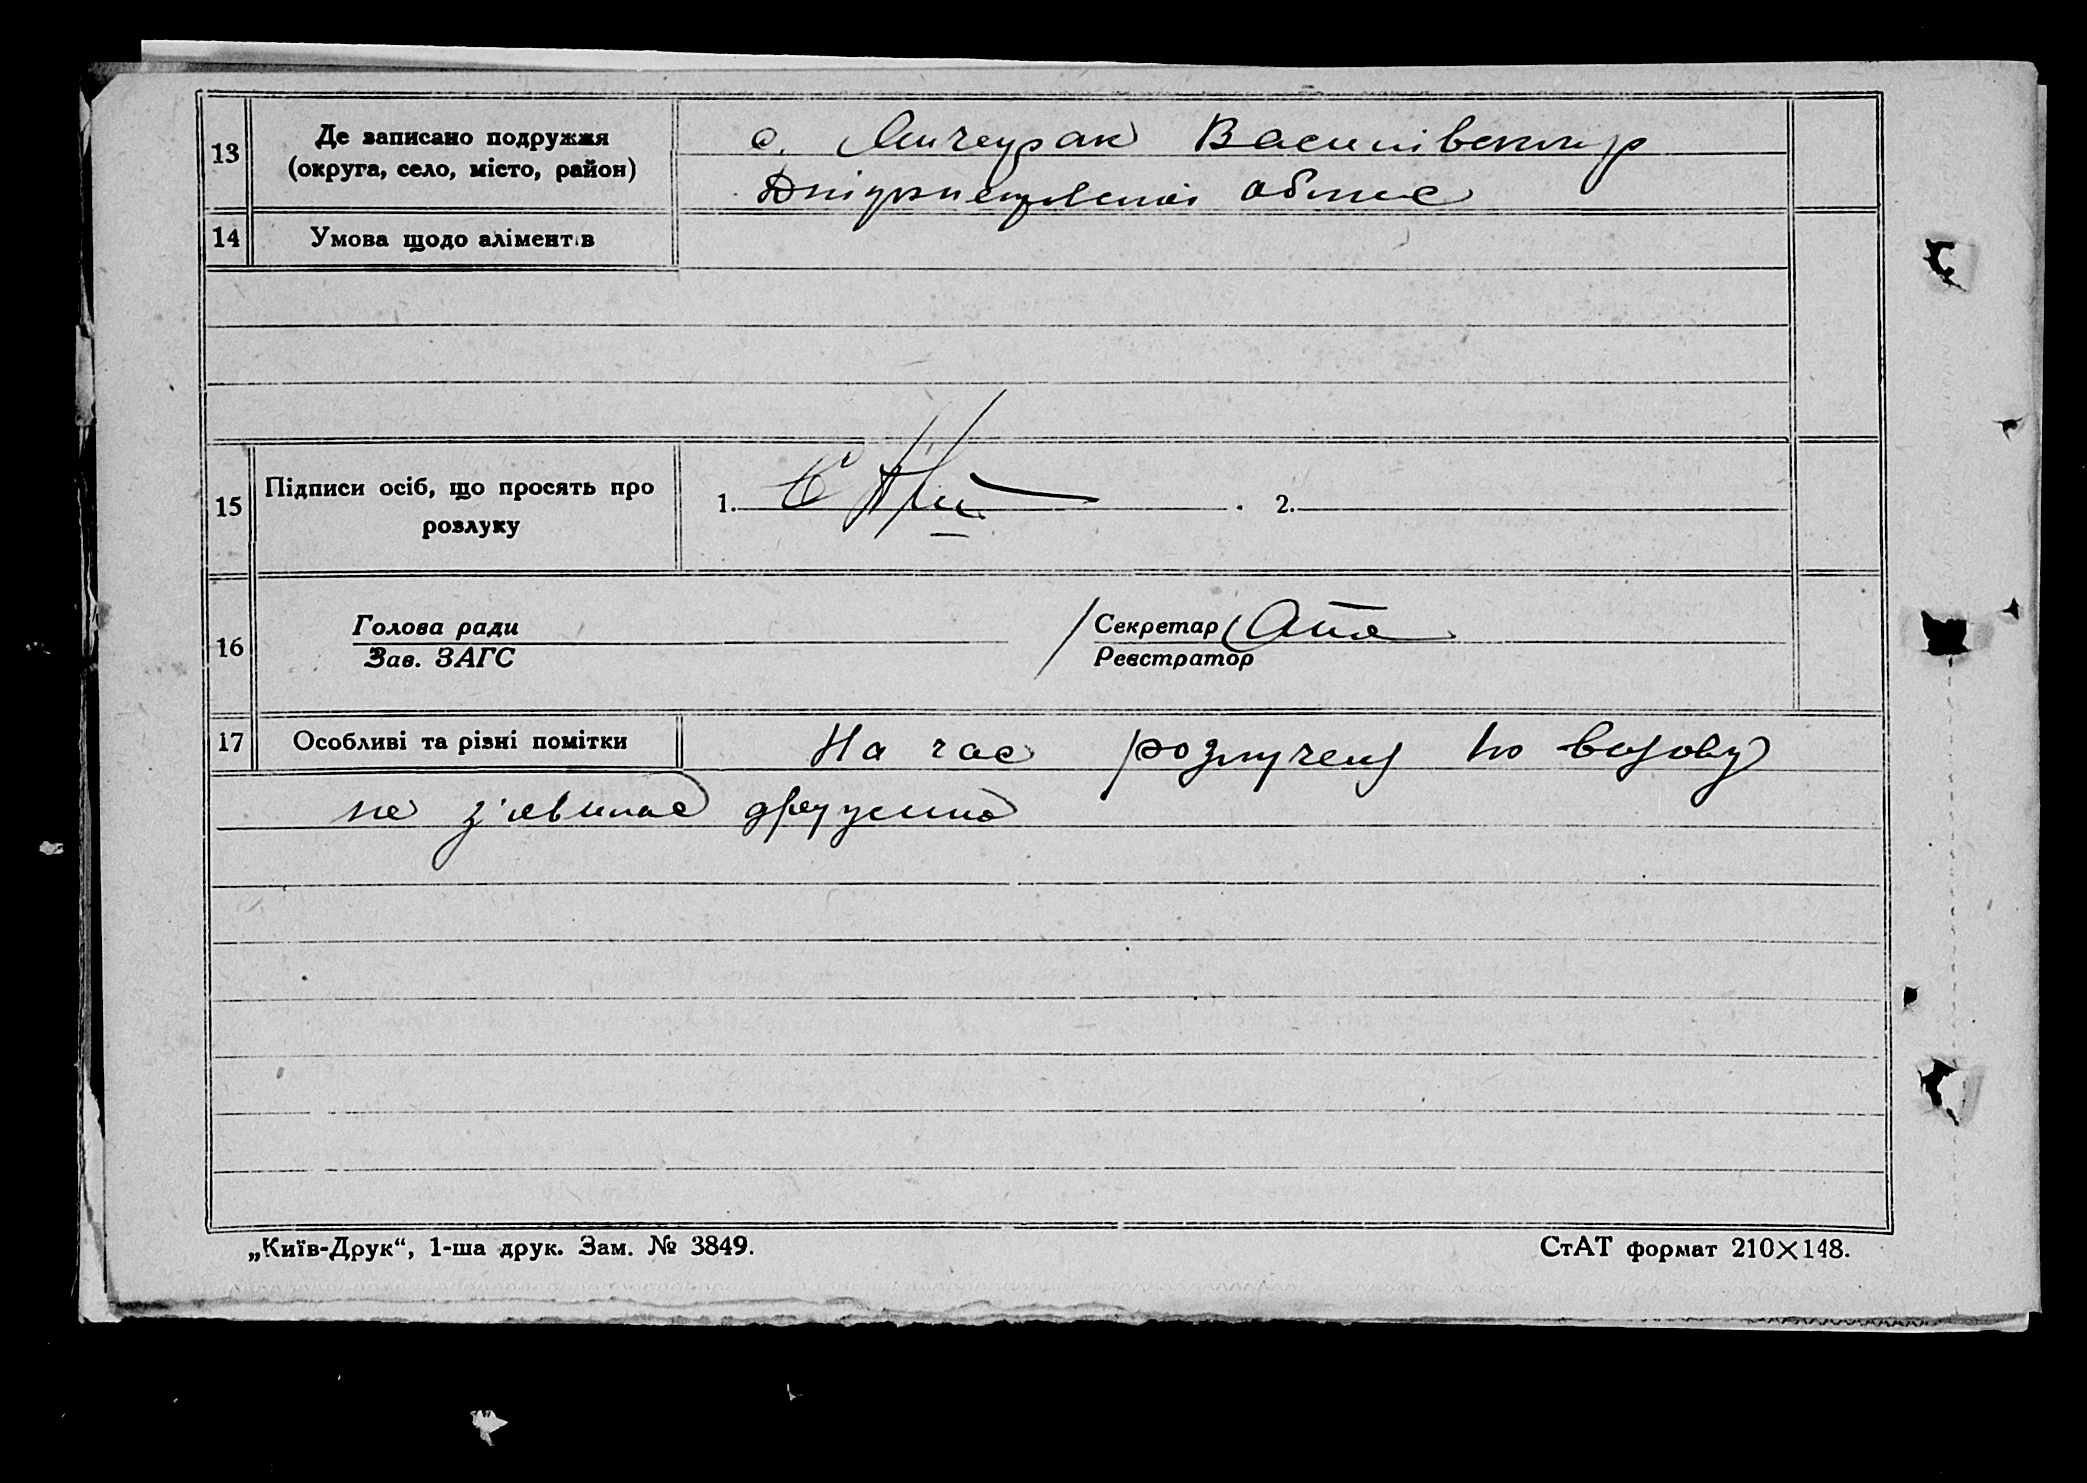 13
Де записано подружжя
(округа, село, місто, район)
с. Василівськ р
Дніпропетровської област
14
Умова щодо аліментів
15
Підписи осіб, що просять про
розлуку
1.
2.
16
Голова ради
Зав. ЗАГС
Секретар
Реєстратор
17
Особливі та різні помітки
На час розлучення по визову
не з'явилас дружина
„Київ-Друк“, 1-ша друк. Зам. № 3849.
СтАТ формат 210×148.